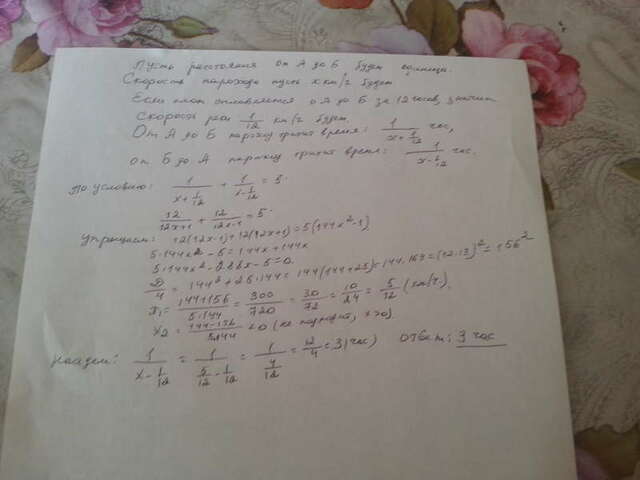 Пусть расстояния от А до Б будет единица.
Скорость парохода пусть x км/ч будет
Если плот сплавляется о А до Б за 12 часов, значит
Скорость реки 1/12 км/ч будет.
От А до Б пароход тратит время: 1/(x+1/12) час,
от Б до А пароход тратит время: 1/(x-1/12) час.
По условию: 1/(x+1/12) + 1/(x-1/12) = 5.
12/(12x+1) + 12/(12x-1) = 5.
Упрощаем: 12(12x-1)+12(12x+1) = 5(144x²-1)
5·144x² - 5 = 144x + 144x
5·144x² - 288x - 5 = 0.
D/4 = 144² + 25·144 = 144(144+25) = 144·169 = (12·13)² = 156²
x₁ = (144+156)/(5·144) = 300/720 = 30/72 = 10/24 = 5/12 (км/ч).
x₂ = (144-156)/(5·144) < 0 (не подходит, x>0)
Находим: 1/(x-1/12) = 1/(5/12-1/12) = 1/(4/12) = 12/4 = 3 (час) Ответ: 3 час